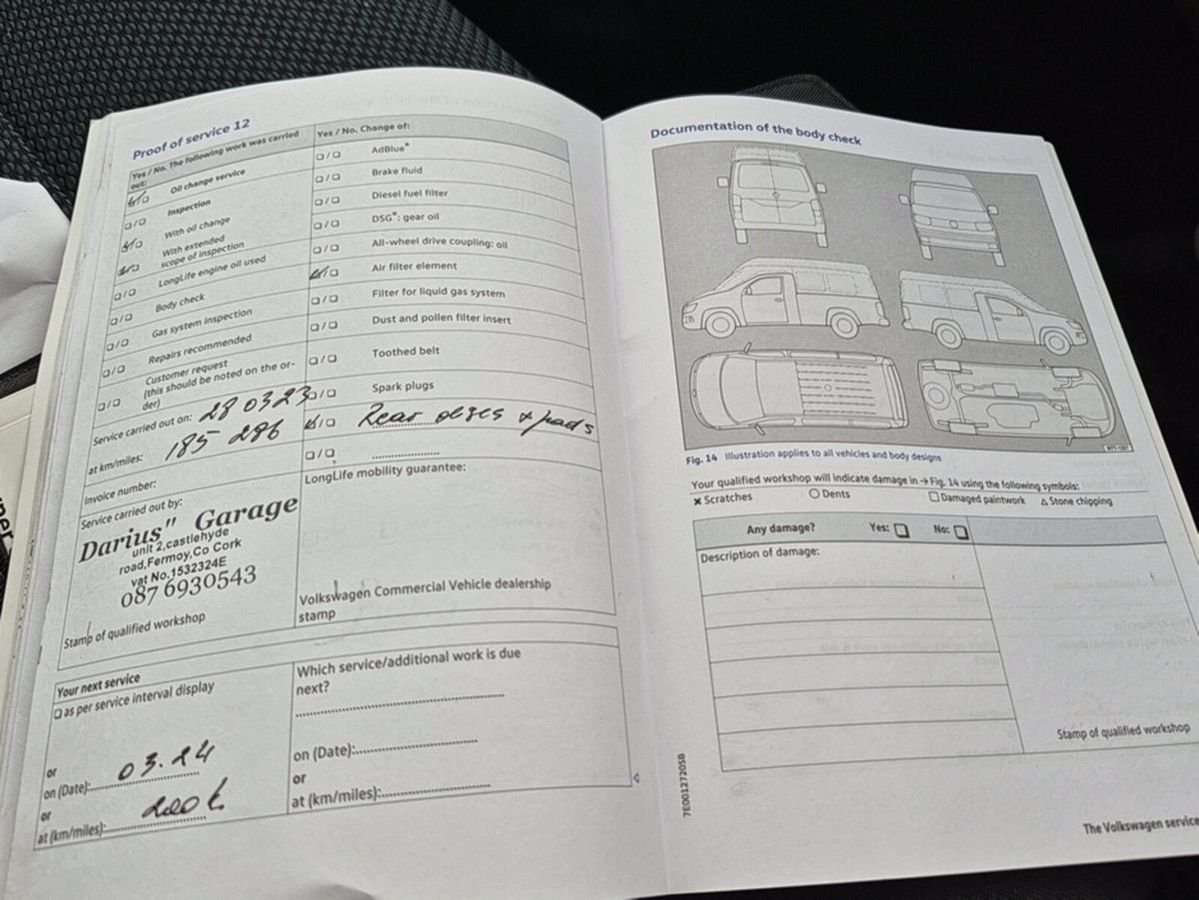 Proof of service 12
Yes / No. The following work was carried out:
Oil change service
Inspection
With oil change
With extended
scope of inspection
LongLife engine oil used
Body check
Gas system inspection
Repairs recommended
Customer request
(this should be noted on the or-
der)
Service carried out on: 28 03 23
at km/miles: 185 286
Invoice number:
Service carried out by:
Darius" Garage
unit 2,castlehyde
road,Fermoy,Co Cork
vat No.1532324E
087 6930543
Stamp of qualified workshop
Yes / No. Change of:
AdBlue®
Brake fluid
Diesel fuel filter
DSG®: gear oil
All-wheel drive coupling: oil
Air filter element
Filter for liquid gas system
Dust and pollen filter insert
Toothed belt
Spark plugs
Rear discs + pads
LongLife mobility guarantee:
Volkswagen Commercial Vehicle dealership
stamp
Your next service
as per service interval display
or
on (Date): 03.24
or
at (km/miles): 200 t.
Which service/additional work is due
next?
on (Date):
or
at (km/miles):
Documentation of the body check
Fig. 14 Illustration applies to all vehicles and body designs
Your qualified workshop will indicate damage in → Fig. 14 using the following symbols:
× Scratches ○ Dents □ Damaged paintwork △ Stone chipping
Any damage? Yes: □ No: □
Description of damage:
Stamp of qualified workshop
7E0012720SB
The Volkswagen service